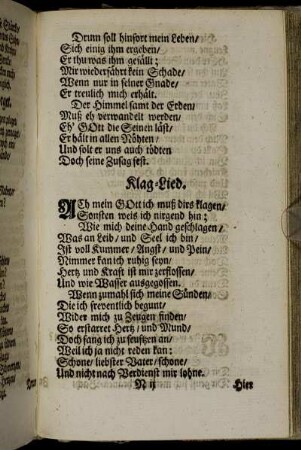 Drum soll hinfort mein Leben/
Sich einig ihm ergeben/
Er thu was ihm gefällt:
Mir wiederfährt kein Schade/
Wenn nur in seiner Gnade/
Er treulich mich erhält.
Der Himmel samt der Erden/
Muß eh verwandelt werden/
Eh' GOtt die Seinen läst/
Er hält in allen Nöhten/
Und solt er uns auch tödten
Doch seine Zusag fest.
Klag-Lied.
ACh mein GOtt ich muß dirs klagen/
Sonsten weis ich nirgend hin;
Wie mich deine Hand geschlagen/
Was an Leib/ und Seel ich bin/
Ist voll Kummer/ Angst/ und Pein/
Nimmer kan ich ruhig seyn/
Hertz und Krafft ist mir zerflossen/
Und wie Wasser ausgegossen.
Wenn zumahl sich meine Sünden/
Die ich freventlich begunt/
Wider mich zu Zeugen finden/
So erstarret Hertz/ und Mund/
Doch fang ich zu seufftzen an/
Weil ich ja nicht reden kan:
Schone/ liebster Vater/ schone/
Und nicht nach Verdienst mir lohne.
N ij
Hier